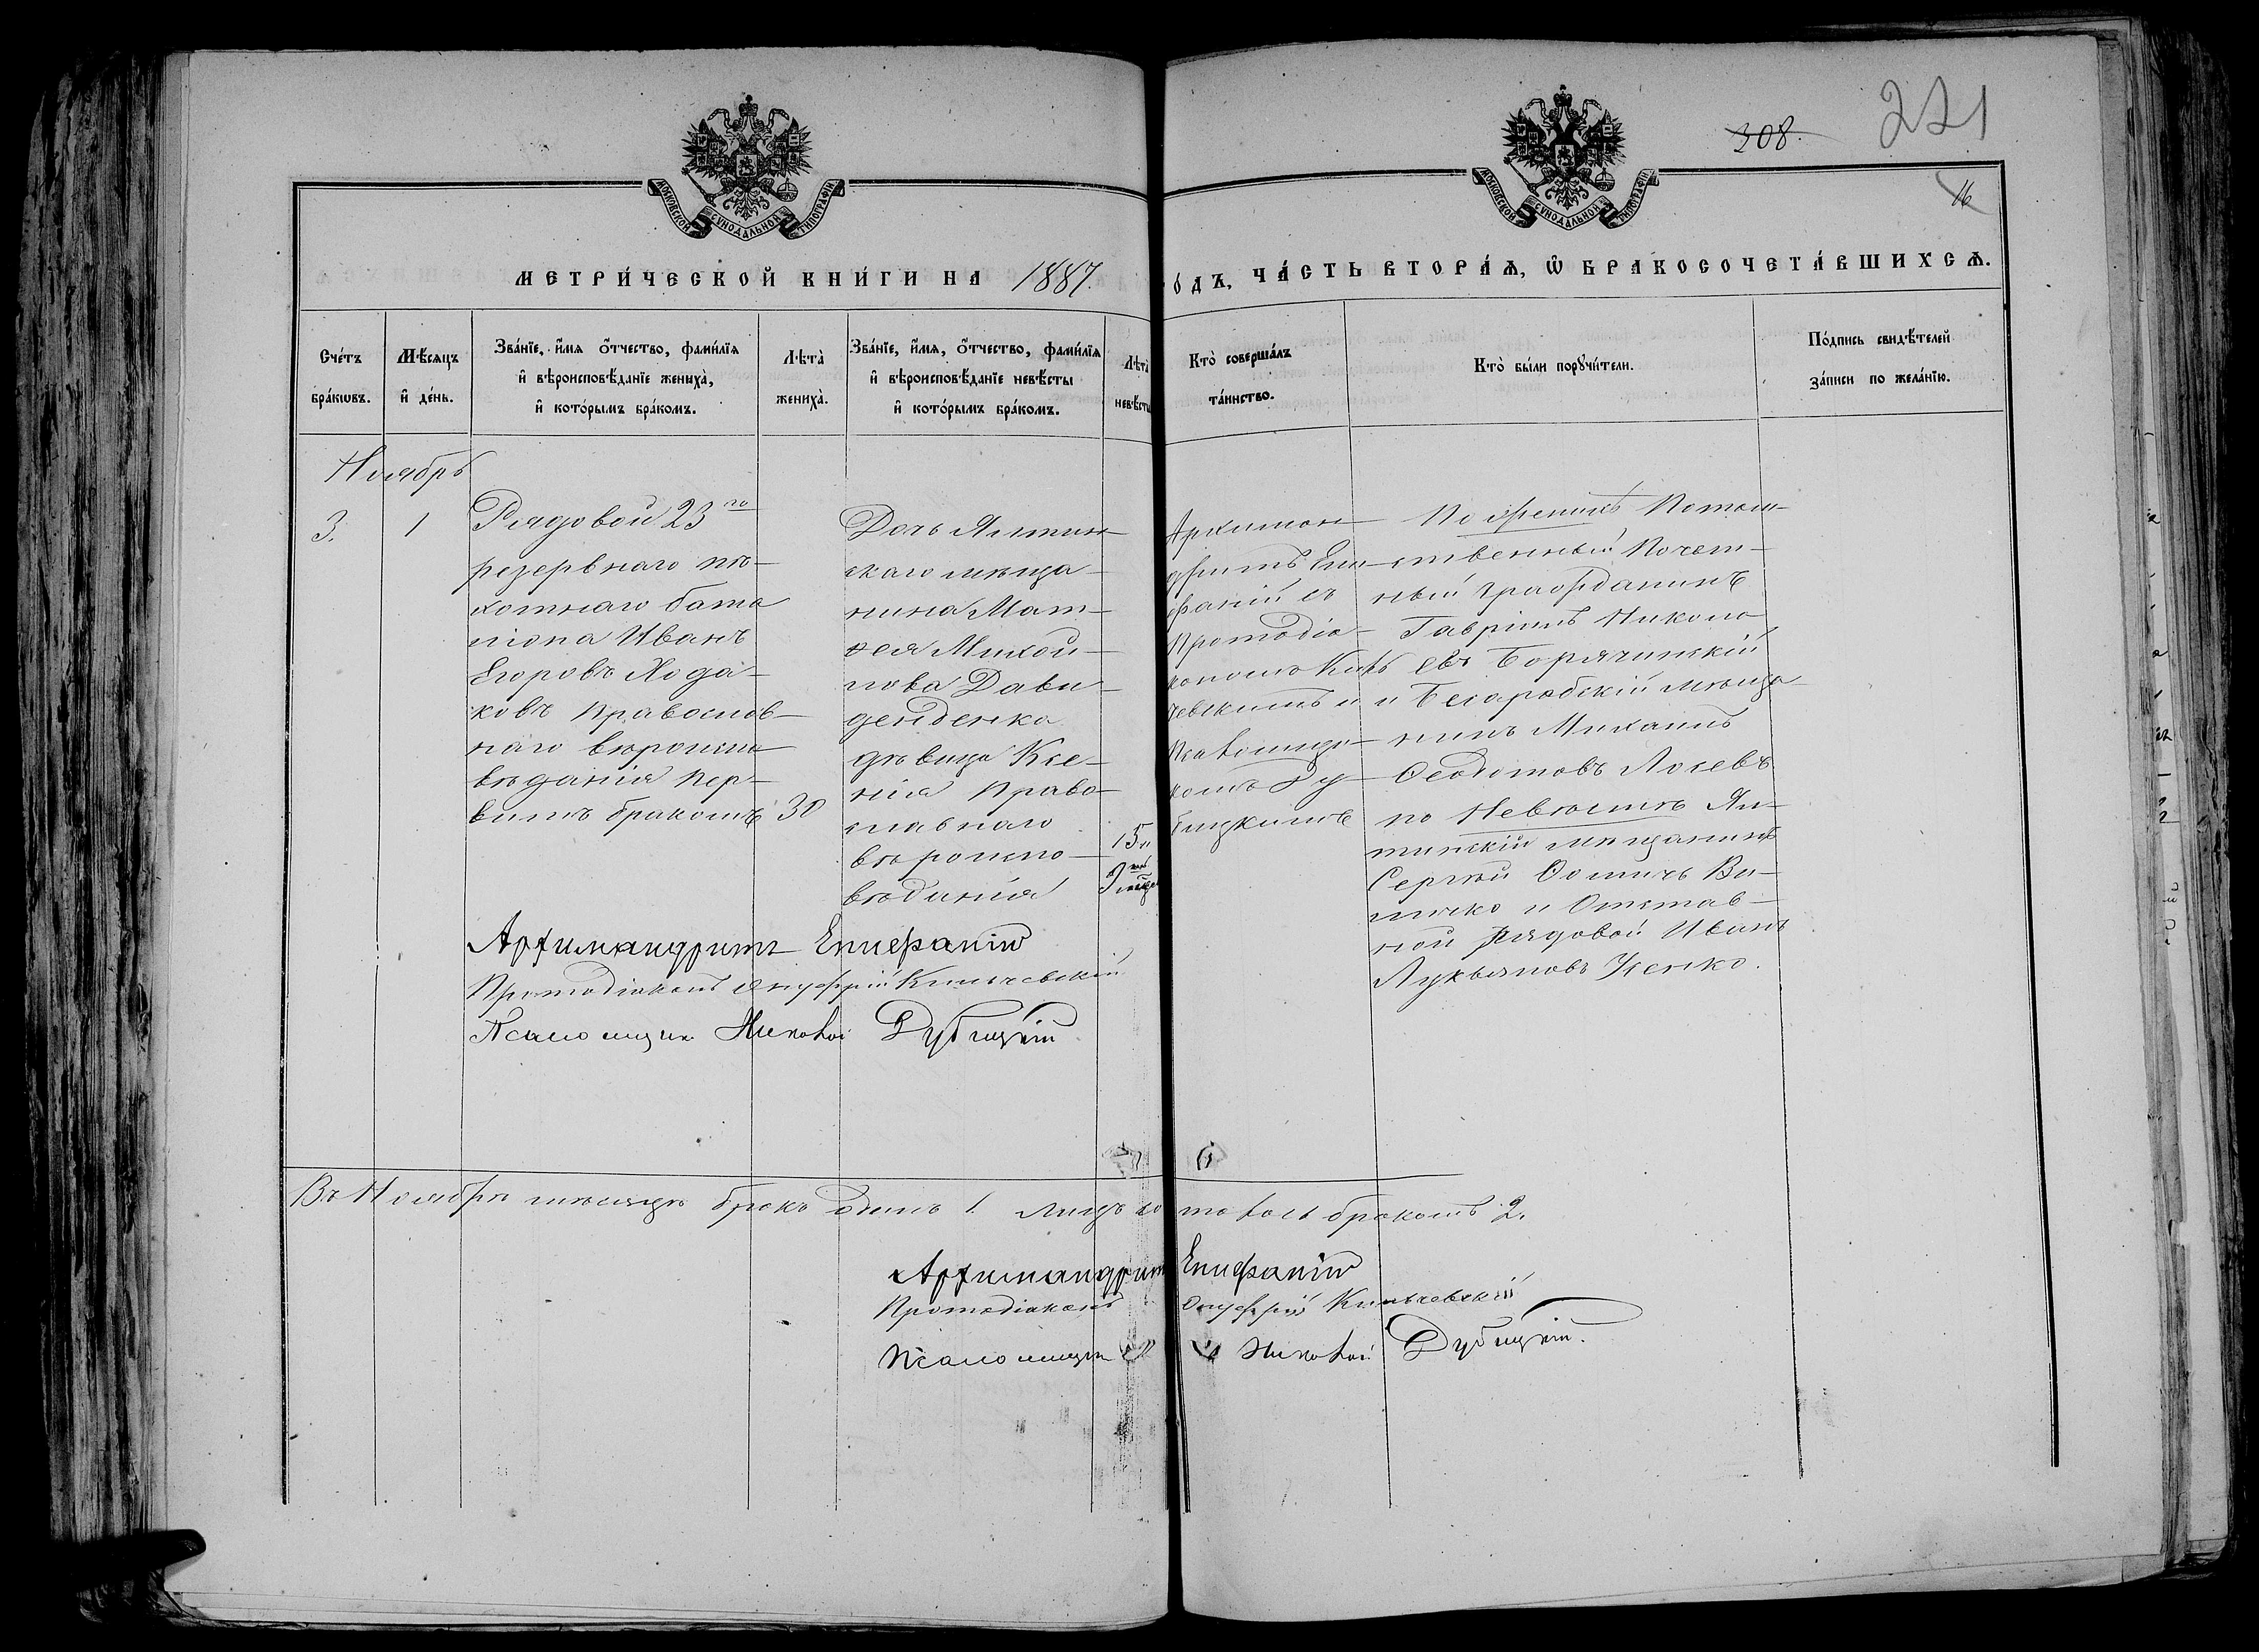 308.
221
16
МОСКОВСКОЙ СѴНОДАЛЬНОЙ ТИПОГРАФІИ
МОСКОВСКОЙ СѴНОДАЛЬНОЙ ТИПОГРАФІИ
МЕТРИ́ЧЕСКОЙ КНИ́ГИ НА 1887.
О́ДЪ, ЧА́СТЬ ВТОРА́Ѧ, Ѿ БРАКОСОЧЕТА́ВШИХСѦ.
Сче́тъ
бра́кωвъ.
Мѣ́сяцъ
и҆ де́нь.
Зва́нїе, и҆́мя ѻ҆́тчество, фами́лїя
и҆ вѣроисповѣ́данїе женихà,
и҆ кото́рымъ бра́комъ.
Лѣ́та
женихà.
Зва́нїе, и҆́мя, ѻ҆́тчество, фами́лїя
и҆ вѣроисповѣ́данїе невѣ́сты
и҆ кото́рымъ бра́комъ.
Лѣ́та
невѣ́сты
Кто̀ соверша́лъ
та́инство.
Кто̀ бы́ли порꙋчи́тели.
По́дпись свидѣ́телей
за́писи по жела́нїю.
Ноябрь
3.
1
Рядовой 23го
резервнаго пѣ-
хотнаго бата
ліона Иванъ
Егоровъ Хода-
ковъ Православ-
наго вѣроиспо-
вѣданія пер-
вымъ бракомъ
30
Дочь Ялтин-
скаго мѣща-
нина Мат-
вея Михай-
лова Дави-
денденка
дѣвица Ксе-
нія Право-
славнаго
вѣроиспо-
вѣданія
15
Архиман-
дритъ Епи-
фаній съ
Протодіа-
кономъ Киль
чевскимъ и
Псаломщи-
комъ Ду-
бицкимъ
По женихѣ Потом-
ственный Почет-
ный гражданинъ
Гавріилъ Никола
евъ Борячинскій
и Бесарабскій мѣща-
нинъ Михаилъ
Ѳеодотовъ Лосевъ
по Невѣстѣ Ял-
тинскій мѣщанинъ
Сергѣй Ѳомичъ Ве-
личко и Отстав-
ной рядовой Иванъ
Лукьяновъ Усенко.
Архимандритъ Епифаній
Протодіаконъ Онуфрій Кильчевскій
Псаломщик Николай Дубицкій
Въ Ноябрѣ мѣсяцѣ бракъ одинъ 1. Лицъ со
талось бракомъ 2.
Архимандрит Епифаній
Протодіаконъ Онуфрій Кильчевскій
Псаломщик Николай Дубицкій.